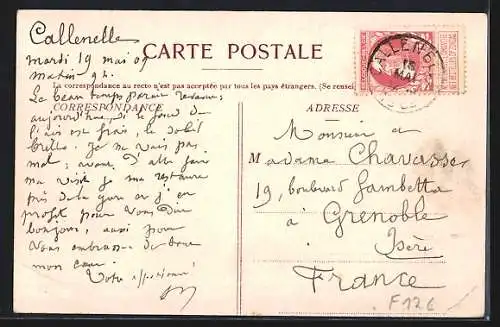 Callenelle
mardi 19 mai 09
matin 9h.
CARTE POSTALE
La correspondance au recto n'est pas acceptée par tous les pays étrangers. (Se rensei
CORRESPONDANCE
ADRESSE
Le beau temps parait revenu;
aujourd'hui, si le fond de
l'air est frais, le soleil
brille. Je ne vais pas
mal; avant d'aller faire
ma visite je me restaure
près de la gare et j'en
profite pour vous dire
bonjour, aussi pour
vous embrasser de tout
mon cœur.
Votre affectionné
Monsieur et
M adame Chavasse
19, boulevard Gambetta
à Grenoble
Isère
France
F126